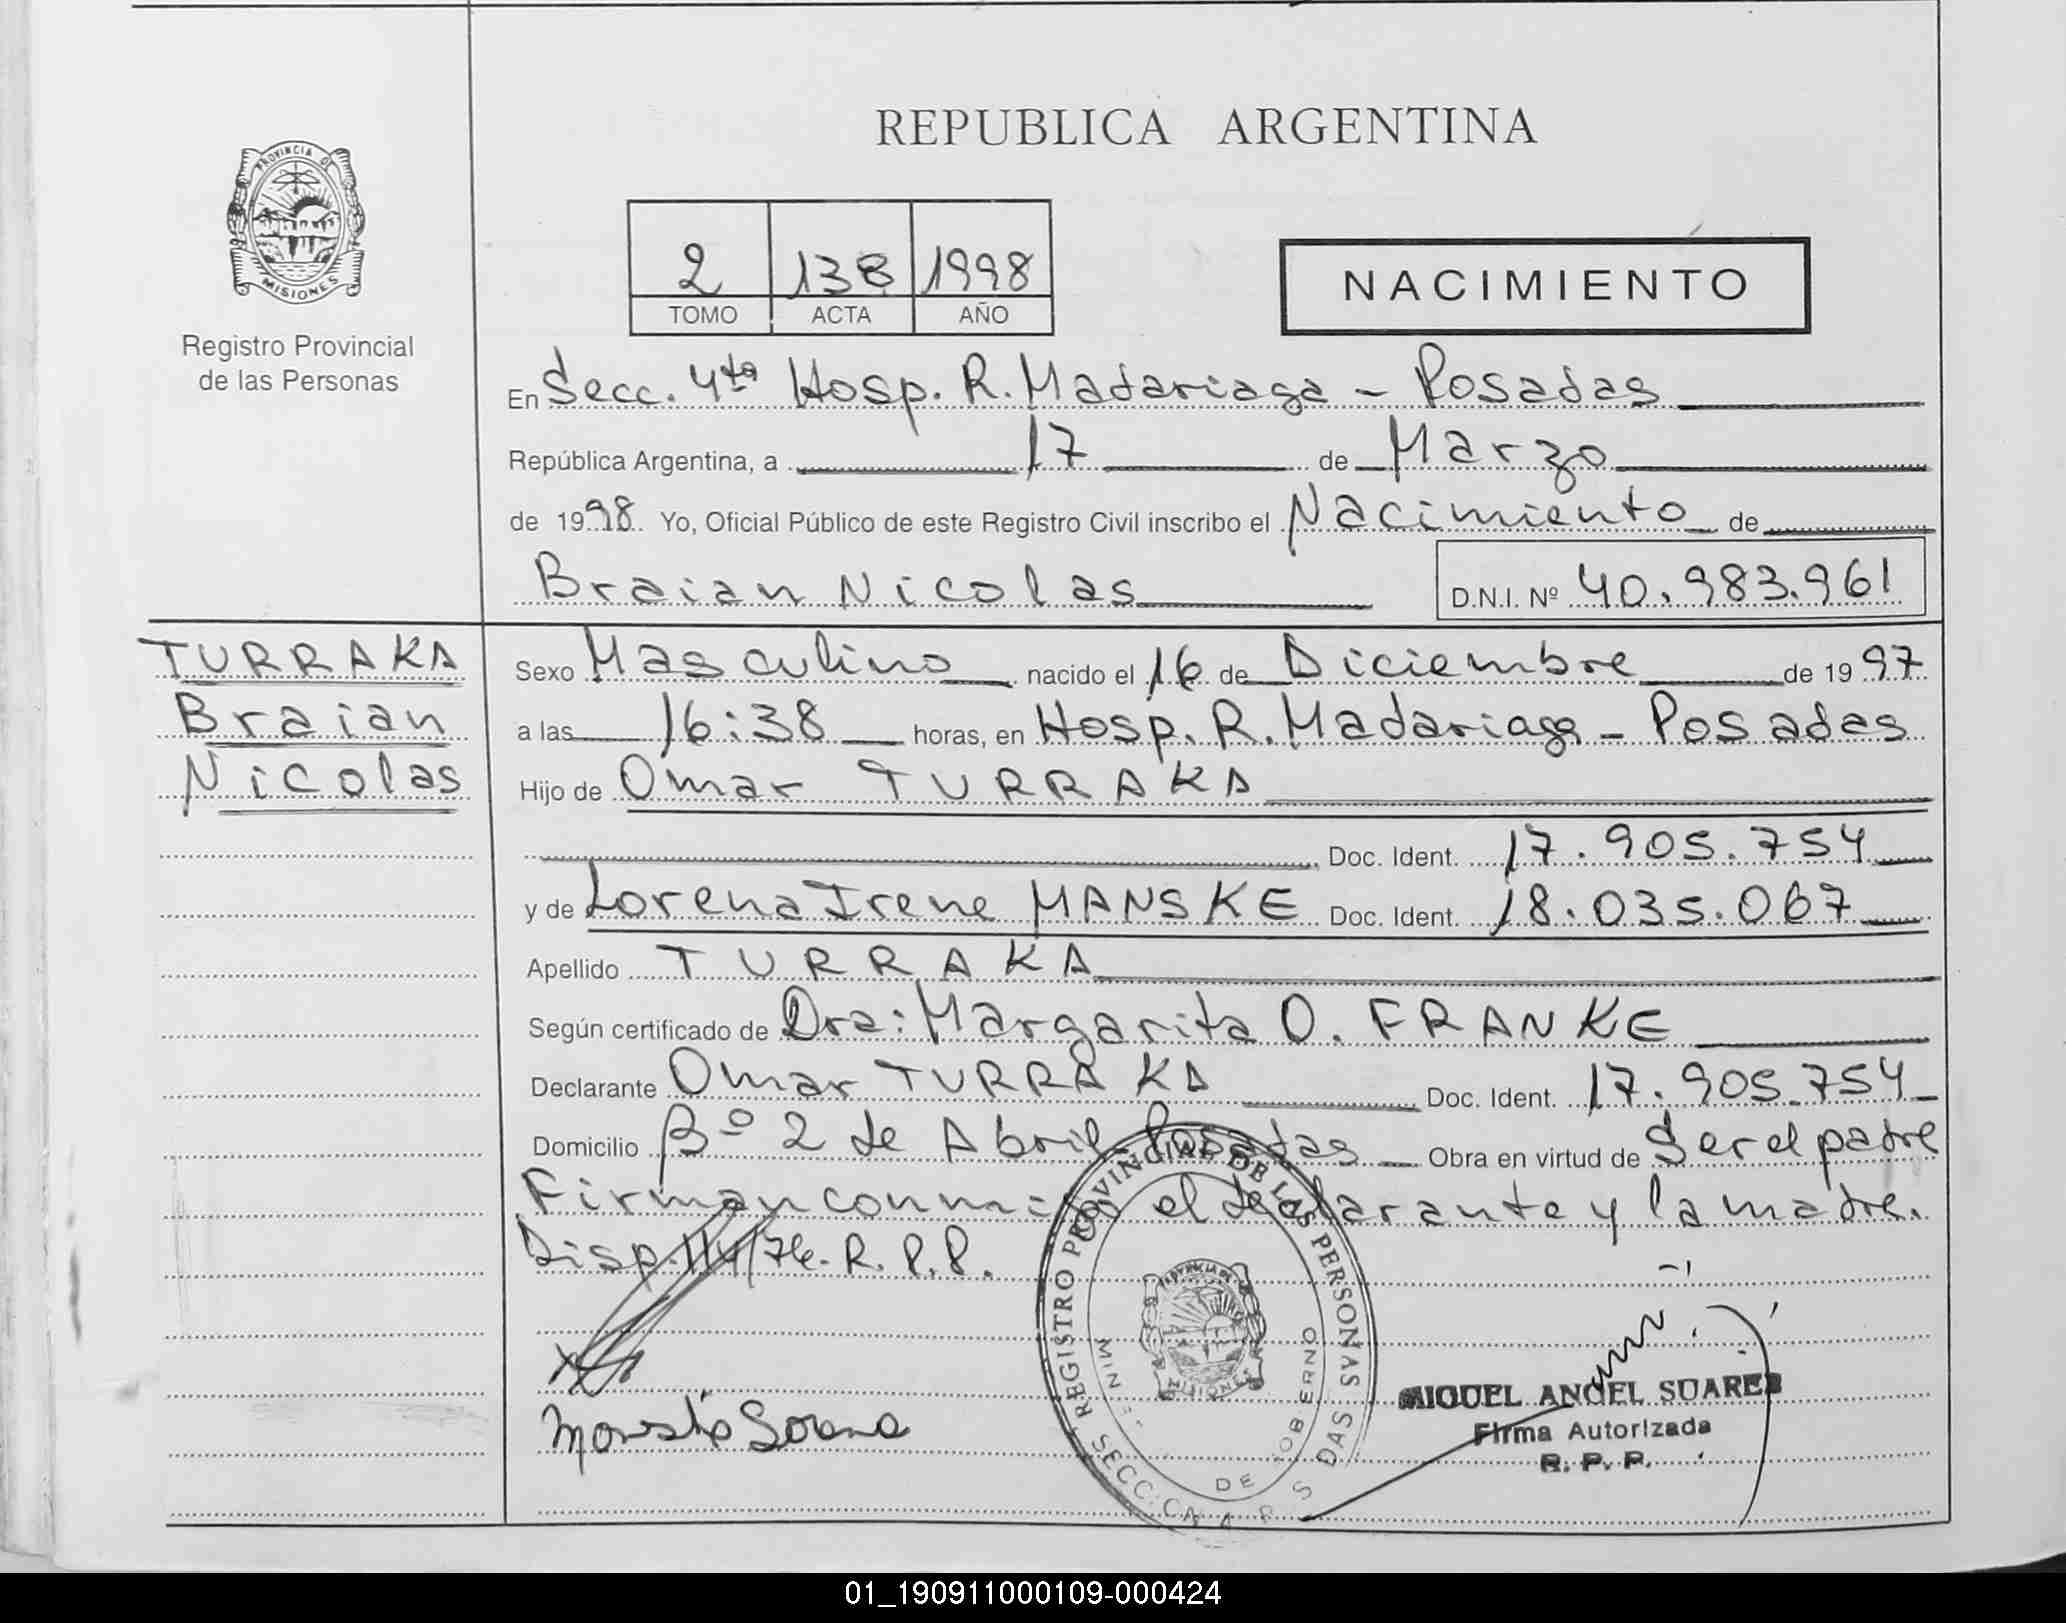 REPUBLICA ARGENTINA
PROVINCIA DE
MISIONES
Registro Provincial
de las Personas
2 138 1998
TOMO ACTA AÑO
NACIMIENTO
En Secc. 4ta Hosp. R. Madariaga - Posadas
República Argentina, a 17 de Marzo
de 1998 Yo, Oficial Público de este Registro Civil inscribo el Nacimiento de
Braian Nicolas D.N.I. Nº 40.983.961
TURRAKA
Braian
Nicolas
Sexo Masculino nacido el 16 de Diciembre de 1997
a las 16:38 horas, en Hosp. R. Madariaga - Posadas
Hijo de Omar TURRAKA
Doc. Ident. 17.905.754
y de Lorena Irene MANSKE Doc. Ident. 18.035.067
Apellido TURRAKA
Según certificado de Dra: Margarita O. FRANKE
Declarante Omar TURRAKA Doc. Ident. 17.905.754
Domicilio Bº 2 de Abril Posadas Obra en virtud de Ser el padre
Firman conmigo el declarante y la madre.
Disp. 114/76. R.P.P.
REGISTRO PROVINCIAL DE LAS PERSONAS
DE GOBIERNO
MISIONES
MIGUEL ANGEL SUAREZ
Firma Autorizada
R. P. P.
01_190911000109-000424